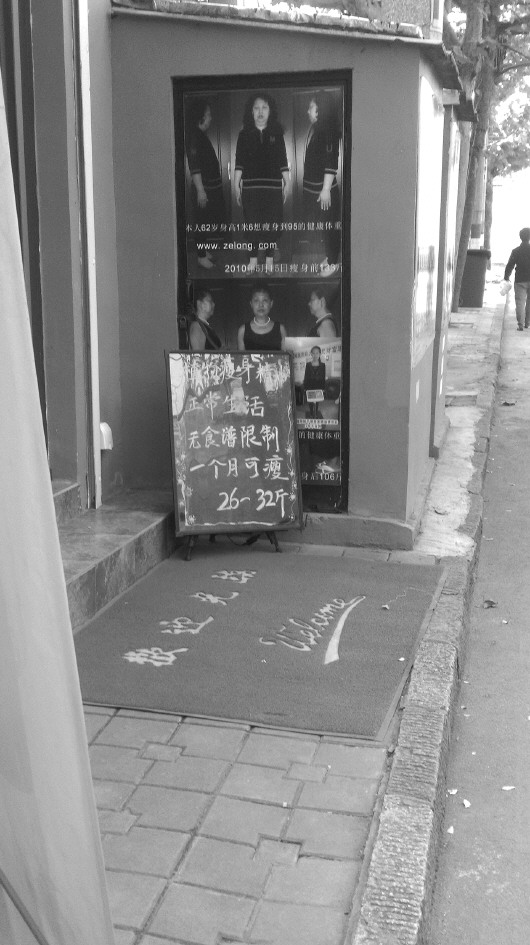 本人62岁身高1米6想瘦身到95的健康体重
www.zelong.com
2010年5月15日瘦身前133斤
的健康体重
前106斤
瘦身精
正常生活
无食谱限制
一个月可瘦
26~32斤
欢迎光临
Welcome